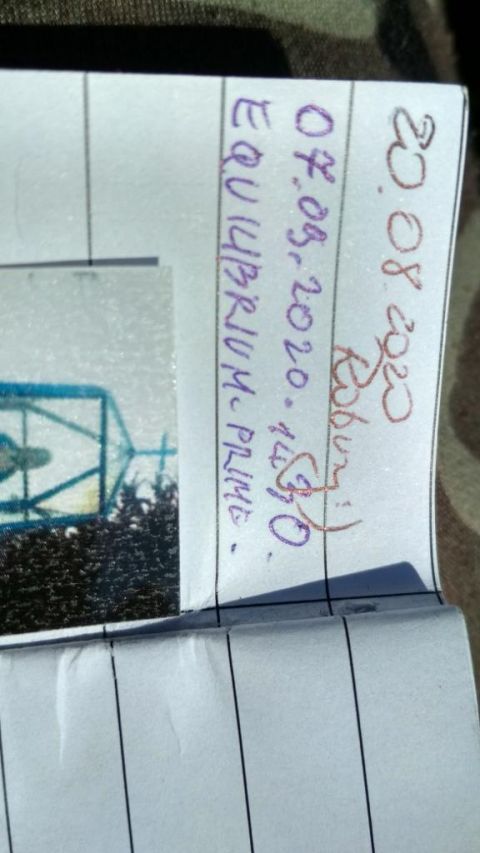 20.08.2020
Robin :)
07.09.2020. 14:30.
EQUILIBRIUM-PRIME.